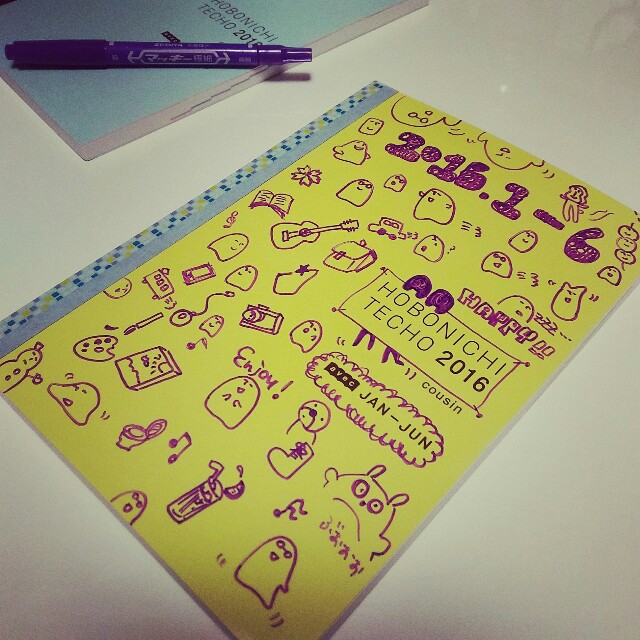 HOBONICHI
TECHO 2016
ZEBRA
マッキー極細
2016.1-6
HAPPY!!
HOBONICHI
TECHO 2016
cousin
zzz...
avec
JAN-JUN
Enjoy!